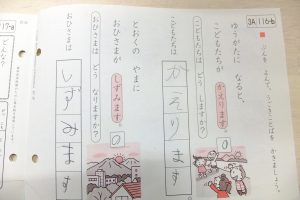 3A 116-b
ぶんを よんで、うごきことばを かきましょう。
ゆうがたに なると、
こどもたちが かえります。
こどもたちは どう しますか?
こどもたちは
かえります
とおくの やまに
おひさまが しずみます。
おひさまは どう なりますか?
おひさまは
しずみます
117-a
どんな?